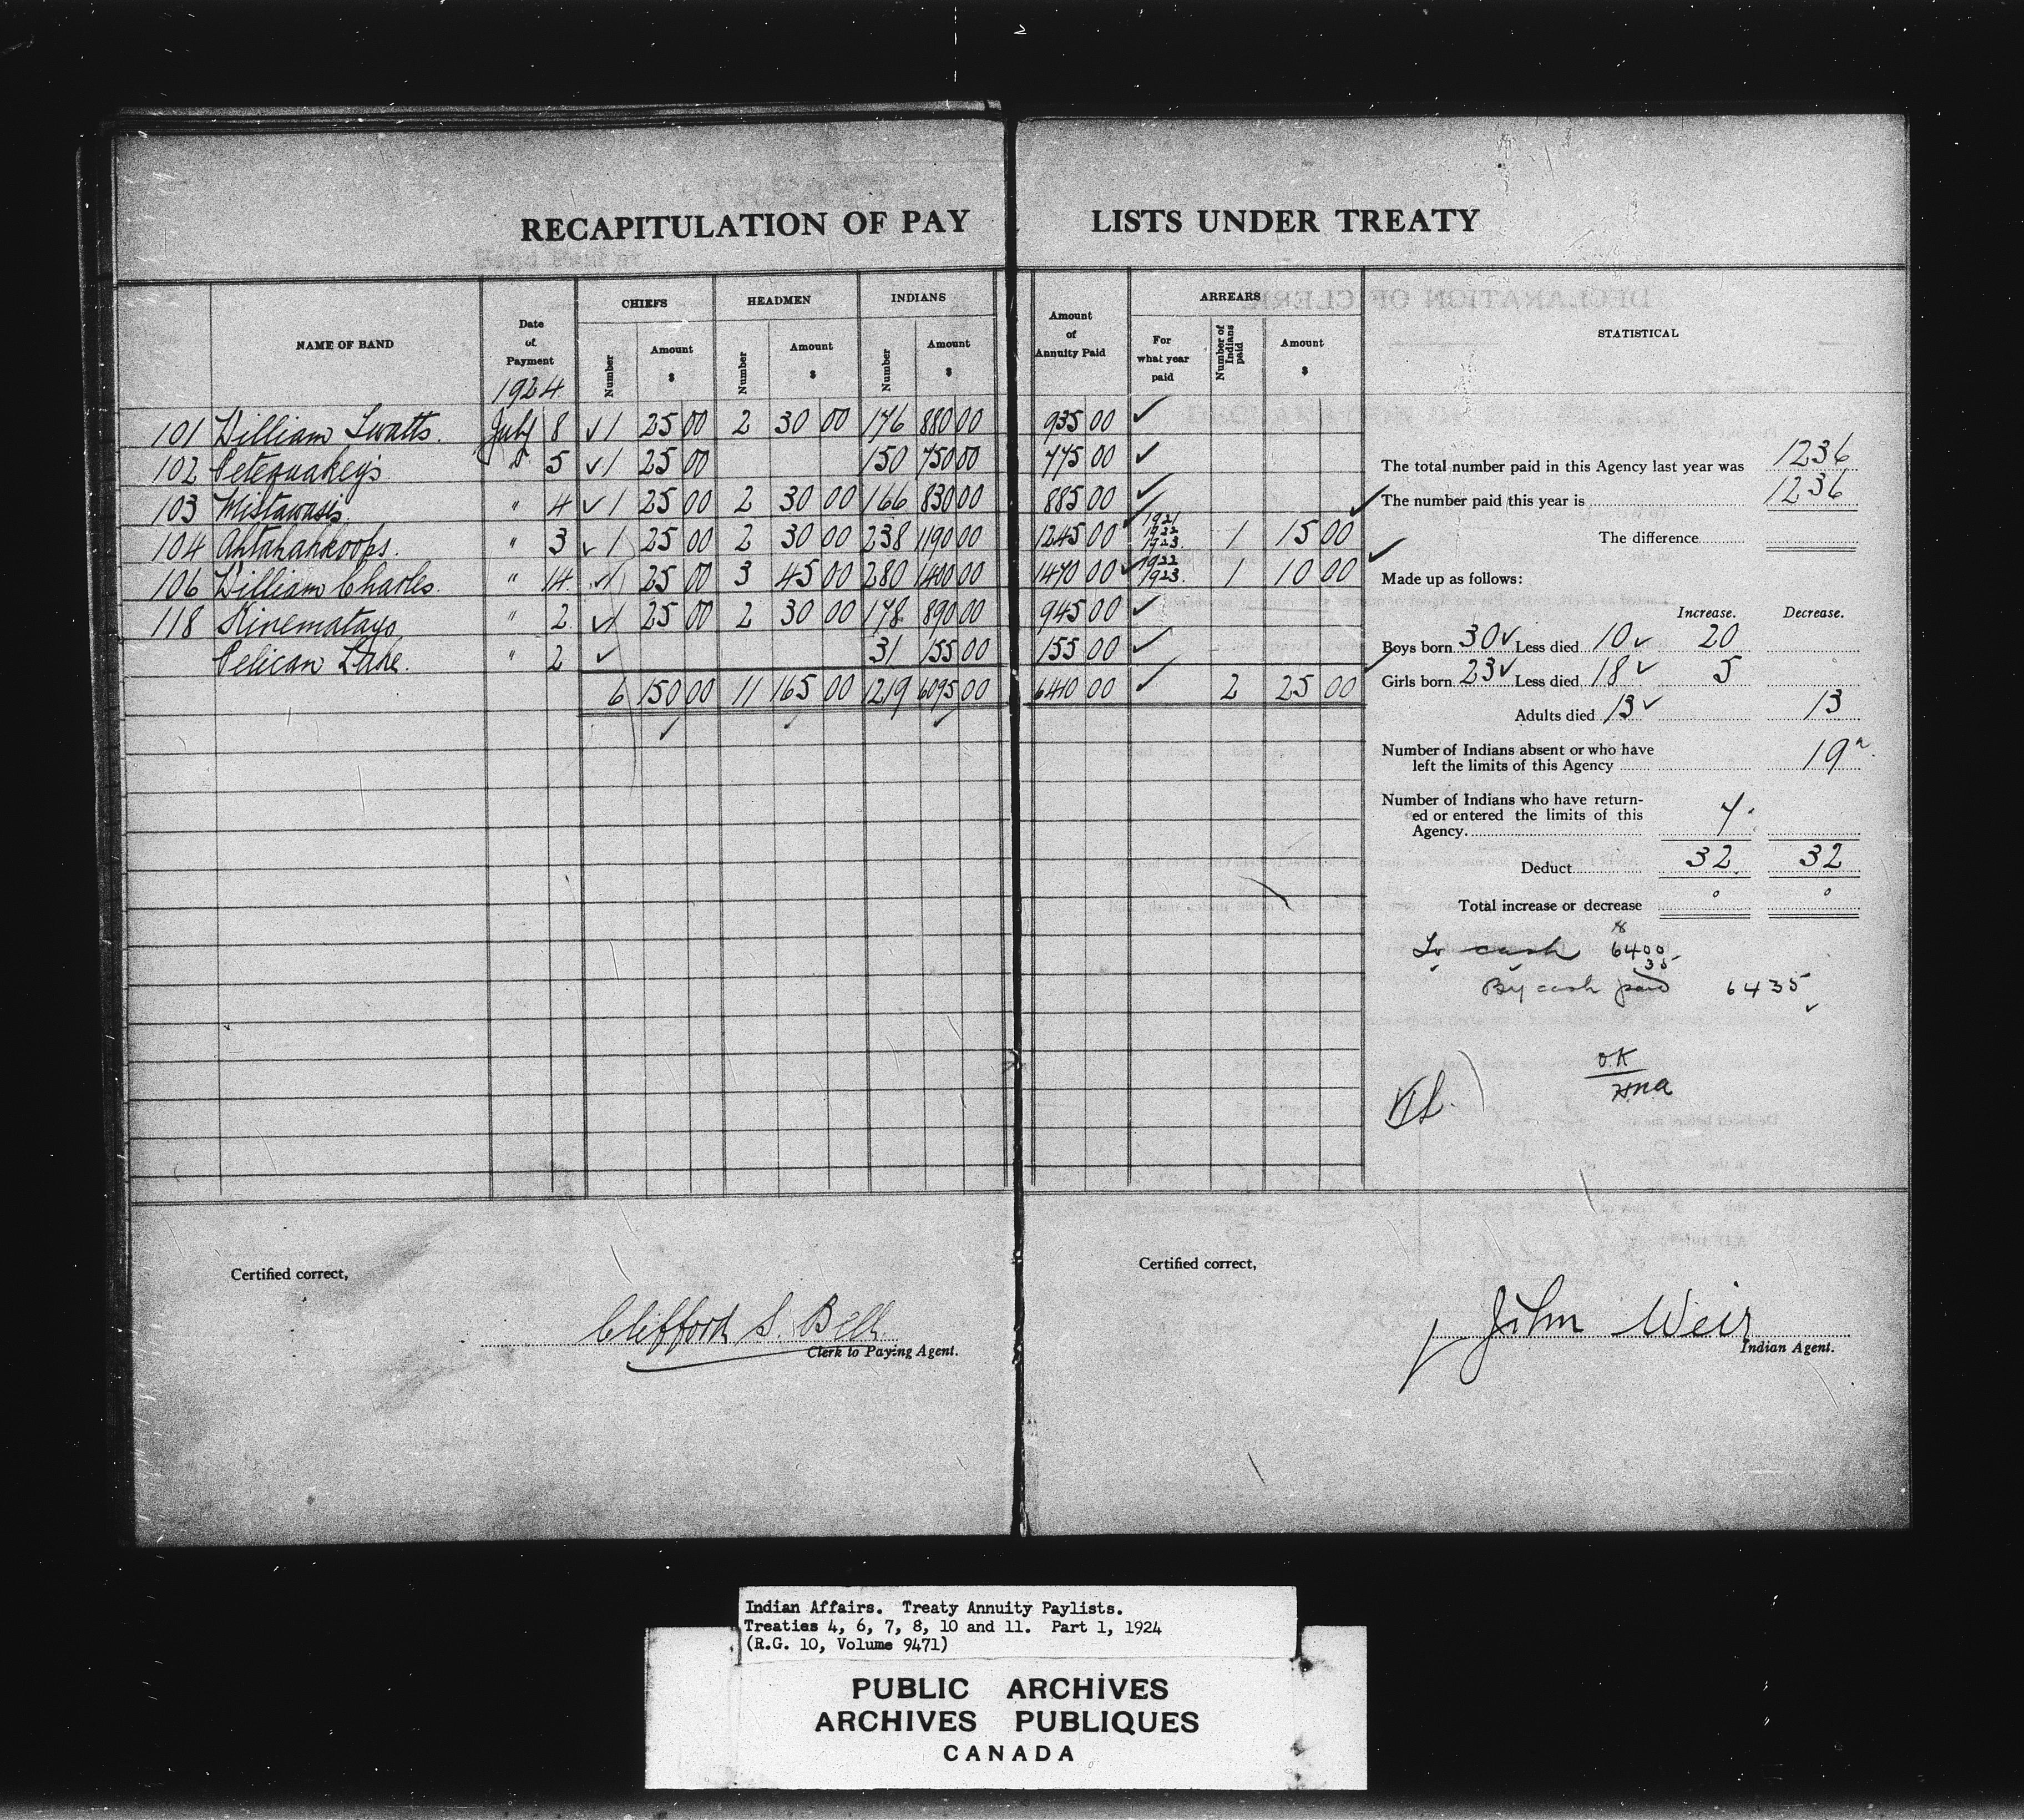 2
RECAPITULATION OF PAY LISTS UNDER TREATY
NAME OF BAND
Date of Payment
1924
CHIEFS
Number
Amount $
HEADMEN
Number
Amount $
INDIANS
Number
Amount $
Amount of Annuity Paid
ARREARS
For what year paid
Number of Indians paid
Amount $
STATISTICAL
101 William Twatts. July 8 ✓ 1 25 00 2 30 00 176 880 00 935 00 ✓
102 Petequakeys " 5 ✓ 1 25 00 150 750 00 775 00 ✓
103 Mistawasis. " 4 ✓ 1 25 00 2 30 00 166 830 00 885 00 ✓
104 Ahtahakoops. " 3 ✓ 1 25 00 2 30 00 238 1190 00 1245 00 ✓ 1921 1922 1923. 1 15 00 ✓
106 William Charles. " 14. ✓ 1 25 00 3 45 00 280 1400 00 1470 00 ✓ 1922 1923. 1 10 00 ✓
118 Kinematayo " 2. ✓ 1 25 00 2 30 00 178 890 00 945 00 ✓
Pelican Lake. " 2 ✓ 31 155 00 155 00 ✓
6 150 00 11 165 00 1219 6095 00 6410 00 ✓ 2 25 00 ✓
The total number paid in this Agency last year was 1236
The number paid this year is 1236
The difference
Made up as follows:
Increase. Decrease.
Boys born 30 ✓ Less died 10 ✓ 20
Girls born 23 ✓ Less died 18 ✓ 5
Adults died 13 ✓ 13
Number of Indians absent or who have
left the limits of this Agency 19
Number of Indians who have return-
ed or entered the limits of this
Agency. 7
Deduct 32 32
Total increase or decrease 0 0
To cash 6400
35
By cash paid 6435 ✓
O.K
Certified correct,
Clifford S. Bell
Clerk to Paying Agent.
Certified correct,
John Weir
Indian Agent.
Indian Affairs. Treaty Annuity Paylists.
Treaties 4, 6, 7, 8, 10 and 11. Part 1, 1924
(R.G. 10, Volume 9471)
PUBLIC ARCHIVES
ARCHIVES PUBLIQUES
CANADA